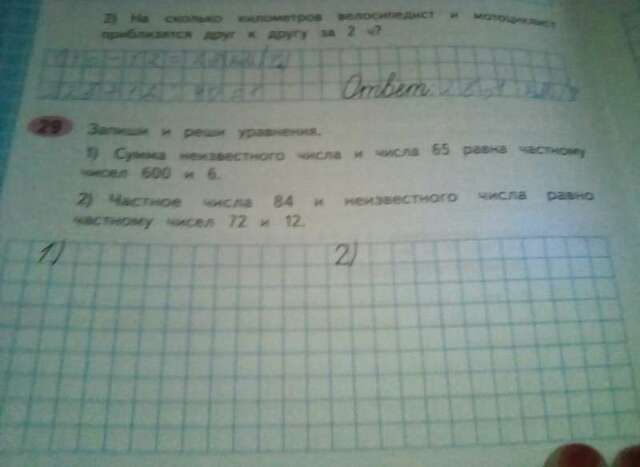 2) На сколько километров велосипедист и мотоциклист
приблизятся друг к другу за 2 ч?
Ответ:
29 Запиши и реши уравнения.
1) Сумма неизвестного числа и числа 65 равна частному
чисел 600 и 6.
2) Частное числа 84 и неизвестного числа равно
частному чисел 72 и 12.
1) 2)